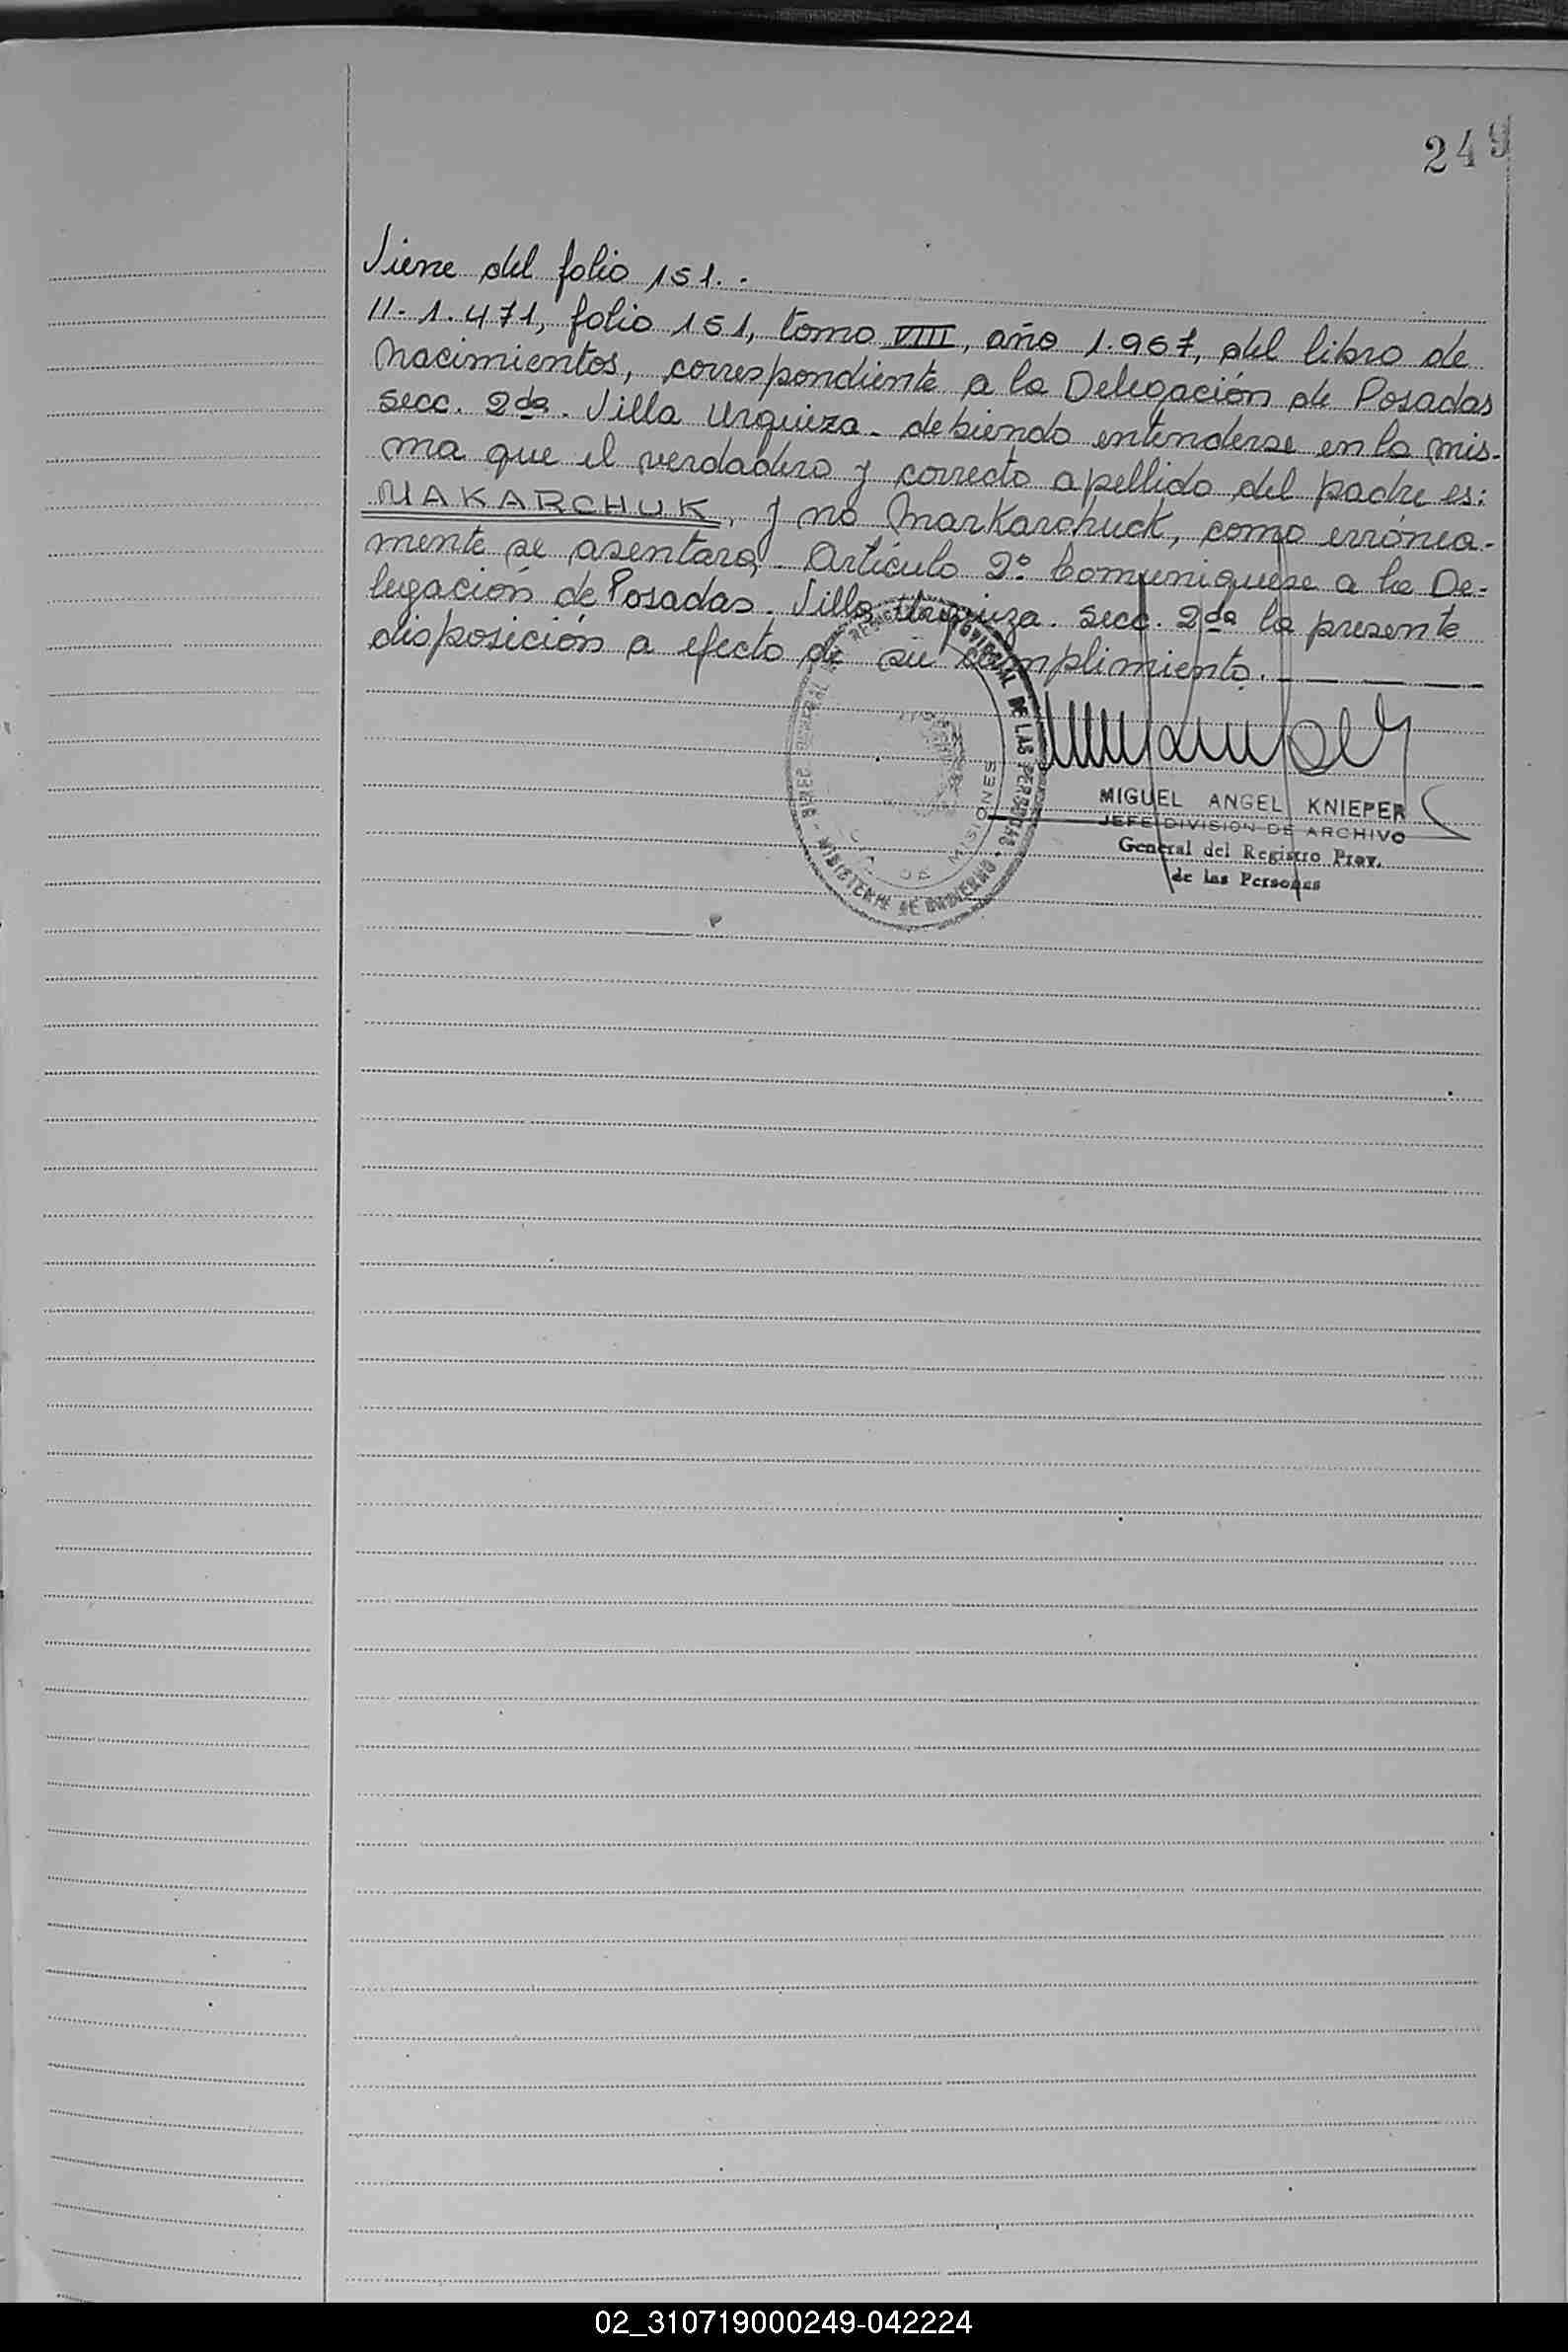 249
Viene del folio 151. -
11-1.471, folio 151, tomo VIII, año 1.967, del libro de
Nacimientos, correspondiente a la Delegación de Posadas
secc. 2da. Villa Urquiza - debiendo entenderse en la mis-
ma que el verdadero y correcto apellido del padre es:
MAKARCHUK, y no Markarchuck, como errónea-
mente se asentara. Artículo 2º Comuniquese a la De-
legación de Posadas. Villa Urquiza. secc. 2da la presente
disposición a efecto de su cumplimiento.
PROVINCIAL DE LAS PERSONAS - MINISTERIO DE GOBIERNO
DE MISIONES
MIGUEL ANGEL KNIEPER
JEFE DIVISION DE ARCHIVO
General del Registro Prov.
de las Personas
02_310719000249-042224